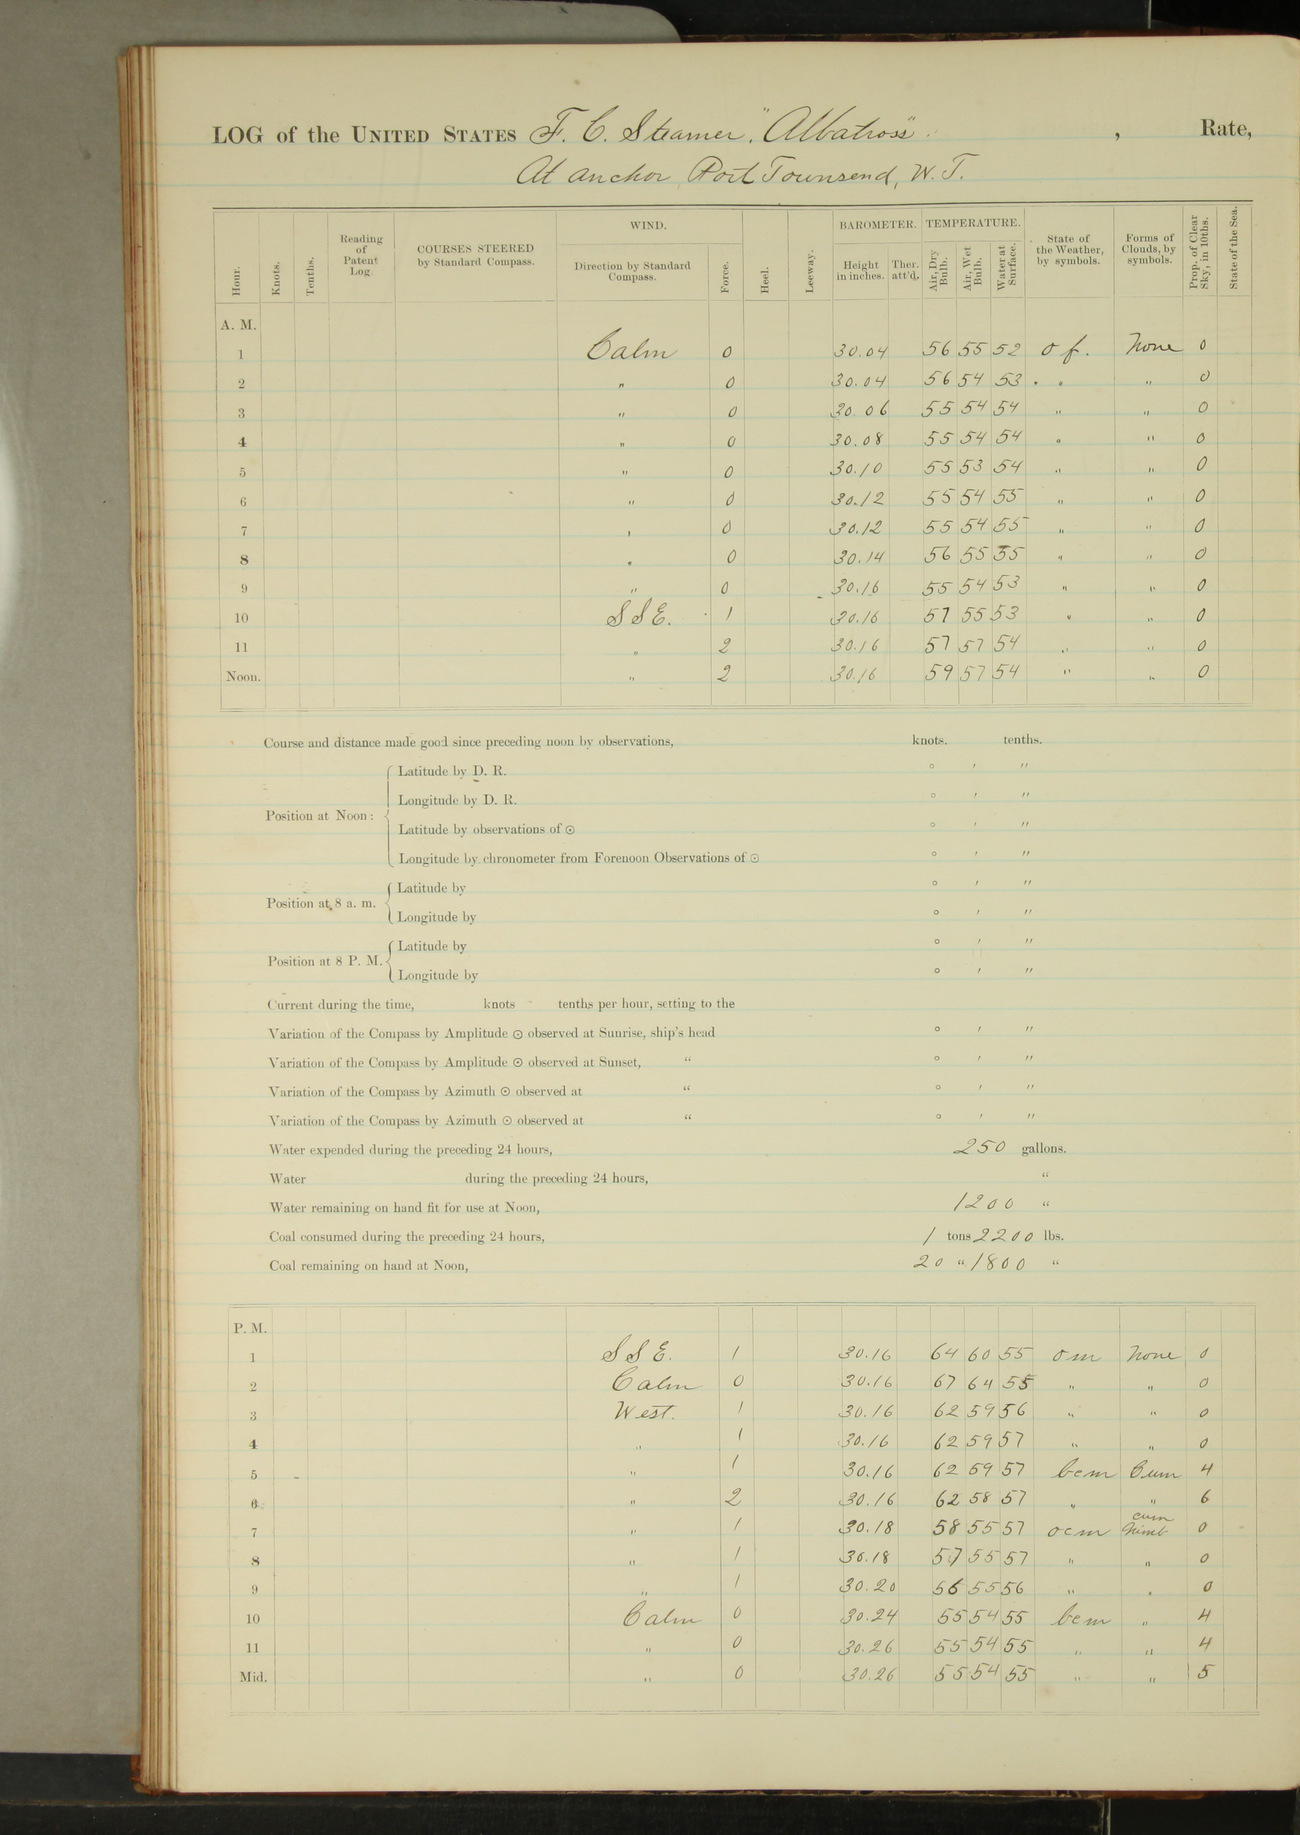 LOG of the UNITED STATES F. C. Steamer, "Albatross". , Rate,
At anchor, Port Townsend, W. T.
Hour. Knots. Tenths. Reading of Patent Log. COURSES STEERED by Standard Compass. WIND. Direction by Standard Compass. Force. Heel. Leeway. BAROMETER. Height in inches. Ther. att'd. TEMPERATURE. Air, Dry Bulb. Air, Wet Bulb. Water at Surface. State of the Weather, by symbols. Forms of Clouds, by symbols. Prop. of Clear Sky, in 10ths. State of the Sea.
A. M.
1 Calm 0 30.04 56 55 52 o f. None 0
2 " 0 30.04 56 54 53 " " 0
3 " 0 30.06 55 54 54 " " 0
4 " 0 30.08 55 54 54 " " 0
5 " 0 30.10 55 53 54 " " 0
6 " 0 30.12 55 54 55 " " 0
7 " 0 30.12 55 54 55 " " 0
8 " 0 30.14 56 55 55 " " 0
9 " 0 30.16 55 54 53 " " 0
10 SSE. 1 30.16 57 55 53 " " 0
11 " 2 30.16 57 57 54 " " 0
Noon. " 2 30.16 59 57 54 " " 0
Course and distance made good since preceding noon by observations, knots. tenths.
Latitude by D. R. ° ′ ″
Longitude by D. R. ° ′ ″
Position at Noon:
Latitude by observations of ⊙ ° ′ ″
Longitude by chronometer from Forenoon Observations of ⊙ ° ′ ″
Latitude by ° ′ ″
Position at 8 a. m.
Longitude by ° ′ ″
Latitude by ° ′ ″
Position at 8 P. M.
Longitude by ° ′ ″
Current during the time, knots tenths per hour, setting to the
Variation of the Compass by Amplitude ⊙ observed at Sunrise, ship's head ° ′ ″
Variation of the Compass by Amplitude ⊙ observed at Sunset, " ° ′ ″
Variation of the Compass by Azimuth ⊙ observed at " ° ′ ″
Variation of the Compass by Azimuth ⊙ observed at " ° ′ ″
Water expended during the preceding 24 hours, 250 gallons.
Water during the preceding 24 hours, "
Water remaining on hand fit for use at Noon, 1200 "
Coal consumed during the preceding 24 hours, 1 tons 2200 lbs.
Coal remaining on hand at Noon, 20 " 1800 "
P. M.
1 SSE. 1 30.16 64 60 55 om None 0
2 Calm 0 30.16 67 64 55 " " 0
3 West. 1 30.16 62 59 56 " " 0
4 " 1 30.16 62 59 57 " " 0
5 " 1 30.16 62 59 57 bcm Cum 4
6 " 2 30.16 62 58 57 " " 6
7 " 1 30.18 58 55 57 ocm cum Nimb 0
8 " 1 30.18 57 55 57 " " 0
9 " 1 30.20 56 55 56 " " 0
10 Calm 0 30.24 55 54 55 bcm " 4
11 " 0 30.26 55 54 55 " " 4
Mid. " 0 30.26 55 54 55 " " 5